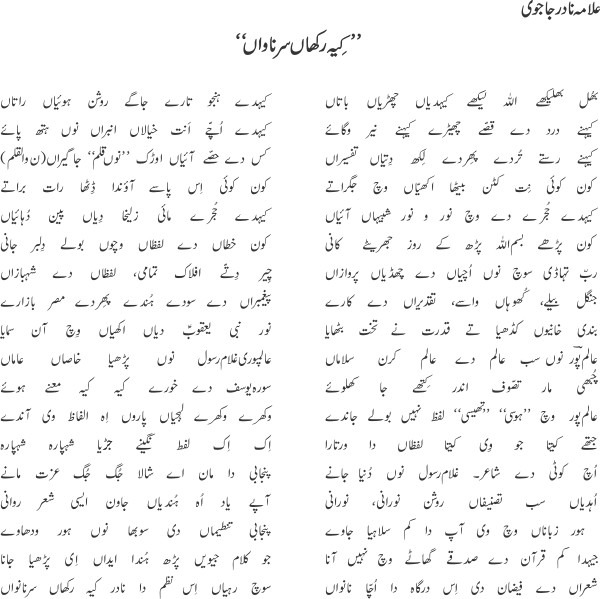 علامہ نادر جاجوی
”کیہ رکھاں سرناواں“
بھل بھلیکھے اللہ لیکھے کیہدیاں چھڑیاں باتاں کیہدے ہنجو تارے جاگے روشن ہوئیاں راتاں
کہنے درد دے قصے چھیڑے کہنے نیر وگائے کیہدے اُچے اُنت خیالاں انبراں نوں ہتھ پائے
کہنے رستے تُردے پھردے لکھ دِتیاں تفسیراں کس دے حصے آئیاں اوڑک ”نوں قلم“ جاگیراں (ن والقلم)
کون کوئی نِت کتن بیٹھا اکھیّاں وچ جگراتے کون کوئی اِس پاسے آؤندا ڈِٹھا رات براتے
کیہدے حُجرے دے وچ نور و نور شبیہاں آئیاں کیہدے حُجرے مائی زلیخا دِیاں پین دُہائیاں
کون پڑھے بسم اللہ پڑھ کے روز جھریٹے کانی کون خطاں دے لفظاں وچوں بولے دِلبر جانی
ربّ تہاڈی سوچ نوں اُچیاں دے چھڈیاں پروازاں چیر دِتّے افلاک تمامی، لفظاں دے شہبازاں
جنگل بیلے، کُھوہاں واسے، تقدیراں دے کارے پیغمبراں دے سودے ہُندے پھردے مصر بازارے
بندی خانیوں کڈھیا تے قدرت نے تخت بٹھایا نور نبی یعقوبؑ دیاں اکھیاں وچ آن سمایا
عالم پور نوں سب عالم دے عالم کرن سلاماں عالمپوری غلام رسول نوں پڑھیا خاصاں عاماں
چُبھی مار تصوّف اندر کِتھے جا کھلوئے سورہ یوسف دے خورے کیہ کیہ معنے ہوئے
عالم پور وچ ”ہوسی“ ”تھیسی“ لفظ نہیں بولے جاندے وکھرے وکھرے لہجیاں پاروں اِہ الفاظ وی آندے
جتھے کیتا جو وی کیتا لفظاں دا ورتارا اِک اِک لفظ نگینے جڑیا شہپارہ شہپارہ
اُچ کوٹی دے شاعر۔ غلام رسول نوں دُنیا جانے پنجابی دا مان اے شالا جُگ جُگ عزت مانے
اُہدیاں سب تصنیفاں روشن نورانی، نورانی آپے یاد اُہ ہُندیاں جاون ایسی شعر روانی
ہور زباناں وچ وی آپ دا کم سلاہیا جاوے پنجابی تنظیماں دی سوبھا نوں ہور ودھاوے
جیہدا کم قرآن دے صدقے گھاٹے وچ نہیں آنا جو کلام جیویں پڑھ ہُندا ایداں اِی پڑھیا جانا
شعراں دے فیضان دی اِس درگاہ دا اُچّا نانواں سوچ رہیاں اِس نظم دا نادر کیہ رکھاں سرنانواں